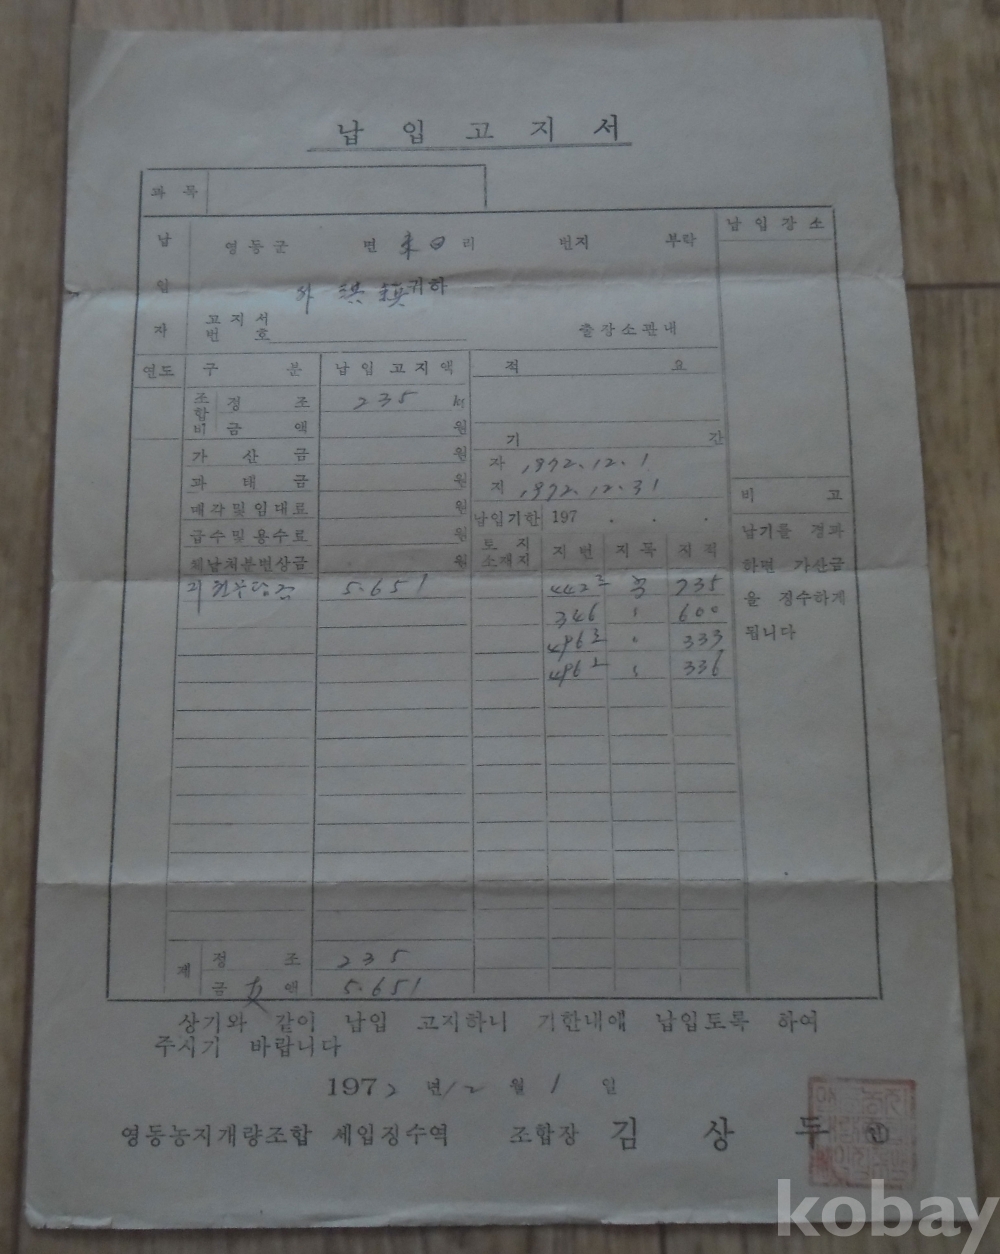 납입고지서
과목
납입자
영동군 면 리 번지 부락
귀하
고지서번호
출장소관내
납입장소
연도 구분 납입고지액 적요
조합비 정조 235 kg
금액 원
기간
가산금 원
자 1972.12.1
과태금 원
지 1972.12.31
매각및임대료 원
납입기한 197 . . .
급수및용수료 원
토지소재지 지번 지목 지적
체납처분변상금 원
5.651
442 735
346 600
496 333
496 336
비고
납기를 경과
하면 가산금
을 징수하게
됩니다
계 정조 235
금액 5.651
상기와 같이 납입 고지하니 기한내에 납입토록 하여
주시기 바랍니다
1972년 12월 1일
영동농지개량조합 세입징수역 조합장 김상두 ㊞
kobay